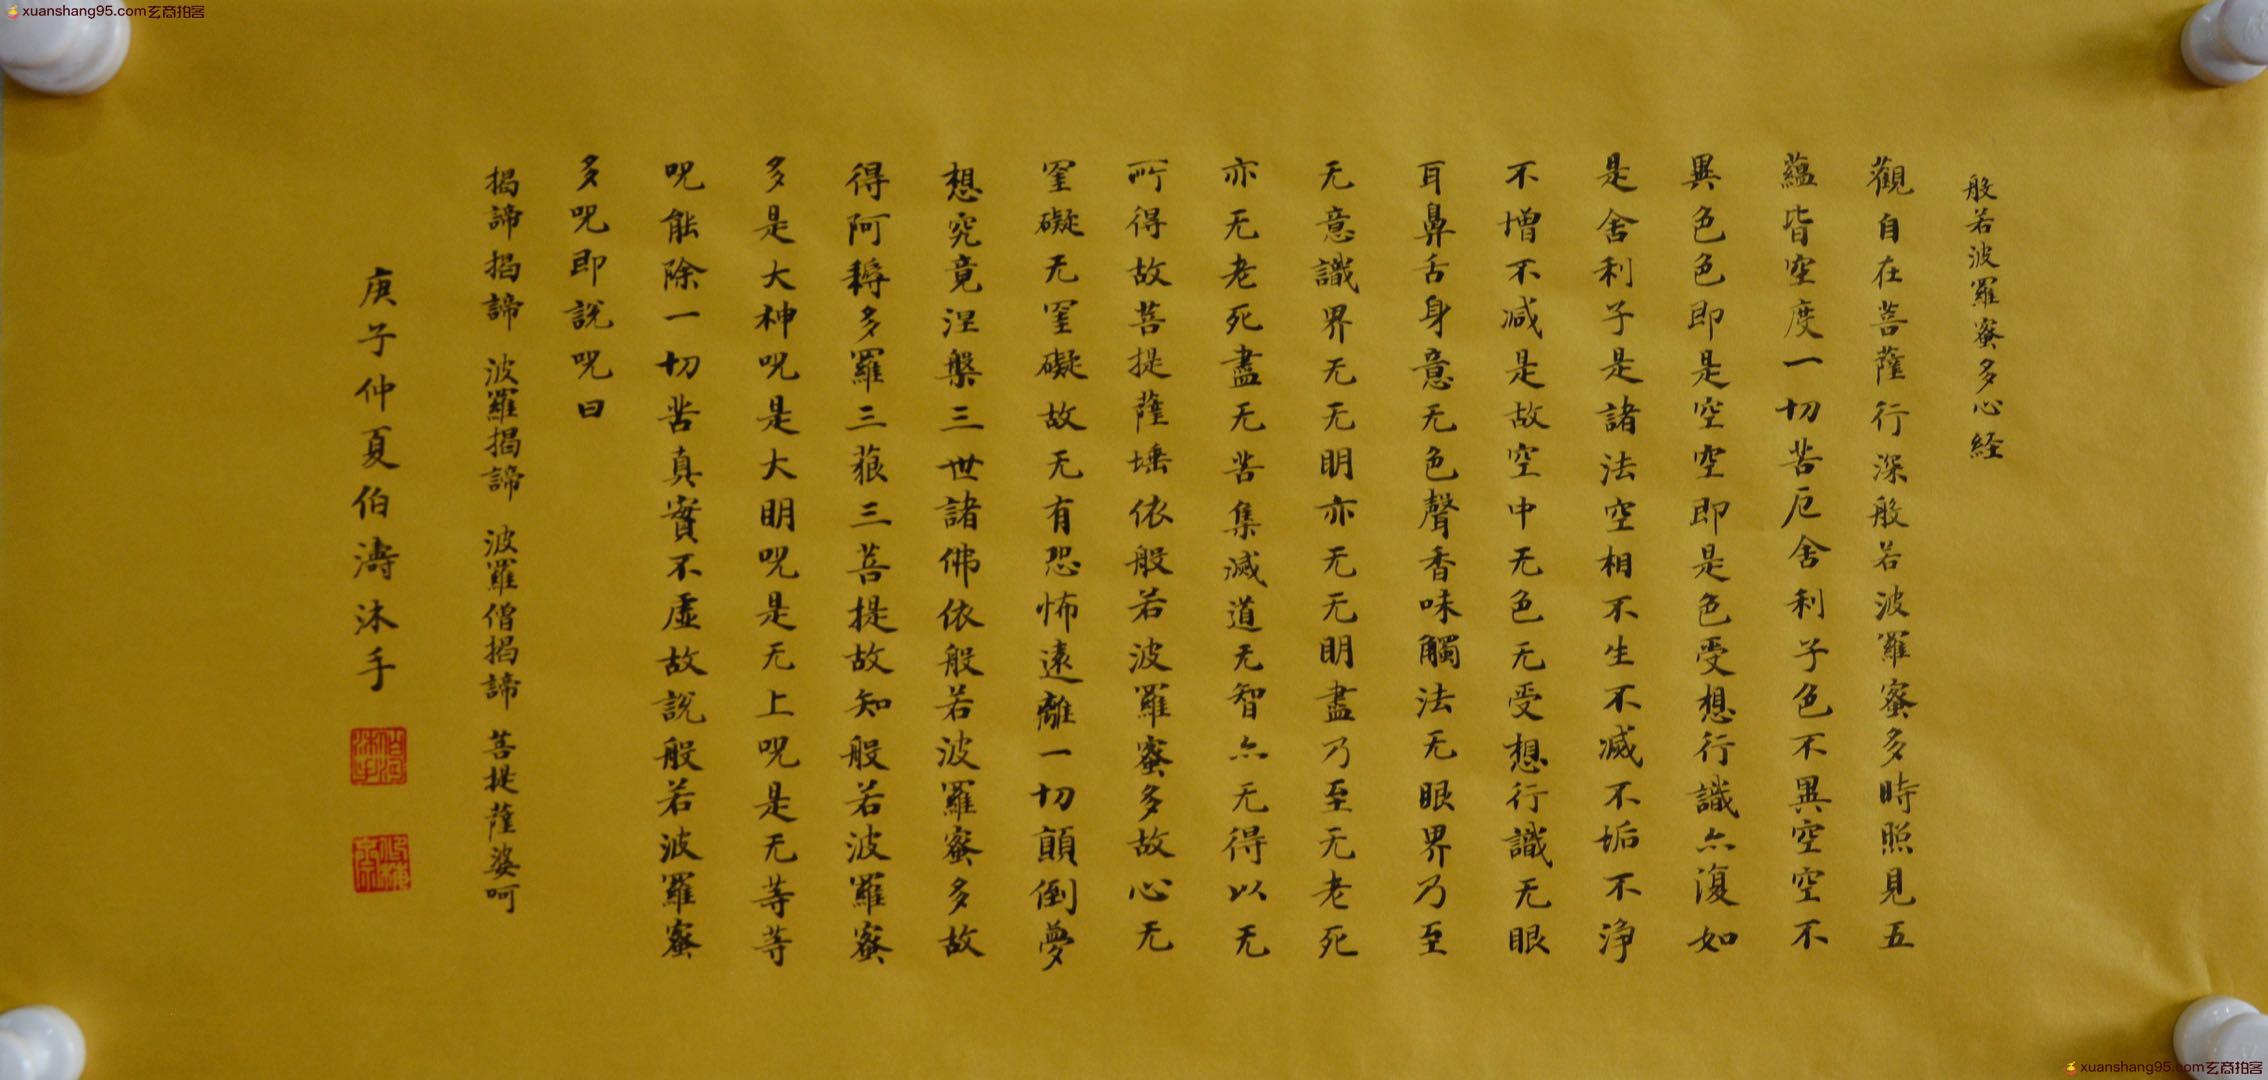 xuanshang95.com玄商拍客
般若波羅蜜多心経
觀自在菩薩行深般若波羅蜜多時照見五
蘊皆空度一切苦厄舍利子色不異空空不
異色色即是空空即是色受想行識亦復如
是舍利子是諸法空相不生不滅不垢不淨
不增不减是故空中无色无受想行識无眼
耳鼻舌身意无色聲香味觸法无眼界乃至
无意識界无无明亦无无明盡乃至无老死
亦无老死盡无苦集滅道无智亦无得以无
所得故菩提薩埵依般若波羅蜜多故心无
罣礙无罣礙故无有恐怖遠離一切顛倒夢
想究竟涅槃三世諸佛依般若波羅蜜多故
得阿耨多羅三藐三菩提故知般若波羅蜜
多是大神呪是大明呪是无上呪是无等等
呪能除一切苦真實不虛故說般若波羅蜜
多呪即說呪曰
揭諦揭諦 波羅揭諦 波羅僧揭諦 菩提薩婆呵
庚子仲夏伯濤沐手
xuanshang95.com玄商拍客